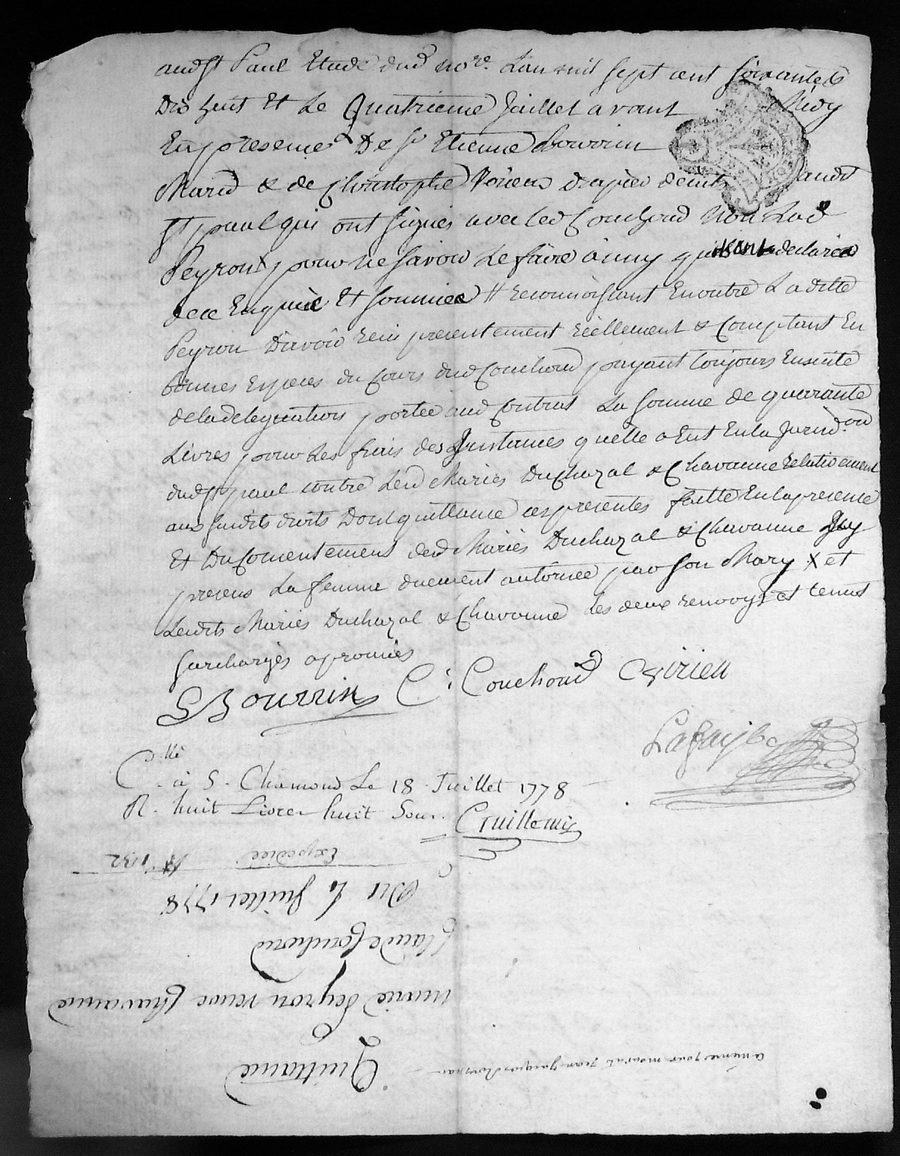 audt St Paul Etude dud nore. Lan mil sept cent soixante &
Dix huit Et Le Quatrieme Juillet avant Midy
En presence De Sr Etienne Bourrin
Marid & de Christophe Virieu Drapier
St paul qui ont signes avec led Couchoud Non Lad
Peyron pour ne savoir Le faire ainsy quelle a declaré
de ce Enquise Et sommée # reconnoissant En outre La ditte
Peyron Davoir recu presentement réellement & Comptant En
bonnes Espèces du Cours dud Couchoud payant toujours Ensuitte
de la delegation portée aud Contrat La somme de quarante
Livres pour Les frais des Instances quelle a Eut En la Jurisdon
dud St paul contre Lesd Mariés Duchazal & Chavanne relativement
aux susdits droits Dont quittance ces presentes faitte En la presence
Et Du Consentement desd Mariés Duchazal & Chavanne Icy
presens La femme duement autorisée par son Mary X et
Lesdits Mariés Duchazal & Chavanne Les deux renvoys et tenus
surcharges aprouvés
EBourrin C. Couchoud Virieu
Lafayolle
Collé
C. à S. Chamond Le 18 Juillet 1778
R. huit Livres huit Sous. Guillemin
Expediée
No 1132
Du 4 Juillet 1778
Claude Couchoud
marie peyron veuve Chavanne
Quittance